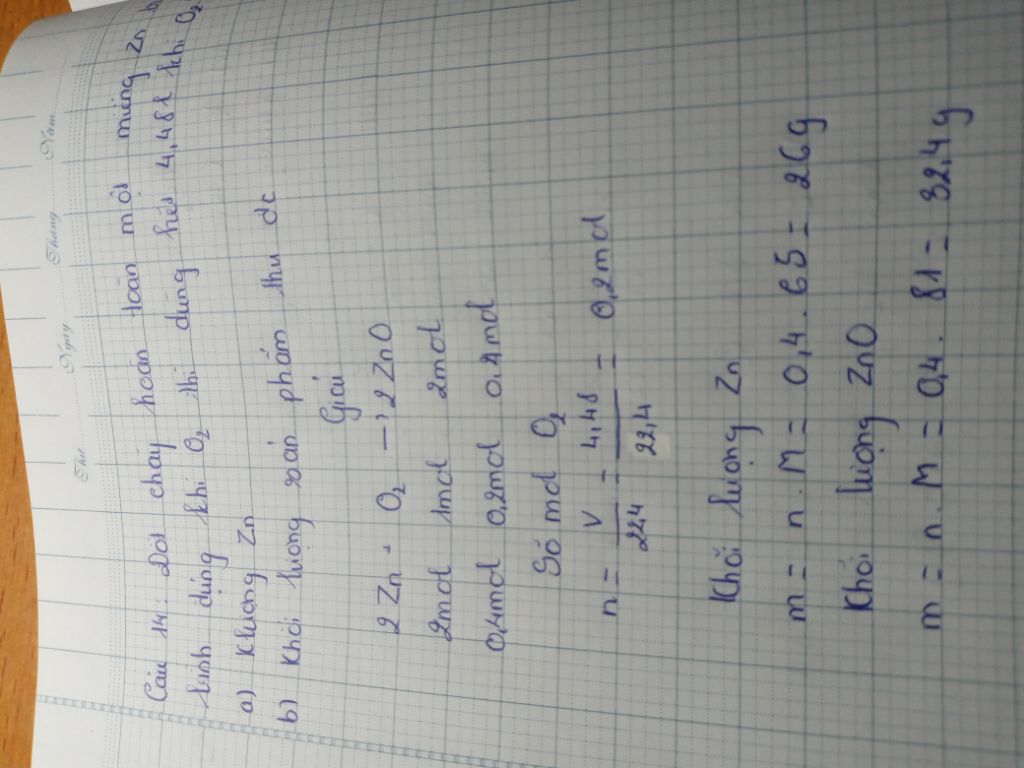 Thứ Ngày Tháng Năm
Câu 14: Đốt cháy hoàn toàn một miếng Zn
bình đựng khí O2 thì dùng hết 4,48l khí O2
a) Klượng Zn
b) Khối lượng sản phẩm thu đc
Giải
2 Zn + O2 → 2 ZnO
2mol 1mol 2mol
0,4mol 0,2mol 0,4mol
Số mol O2
n = V/22,4 = 4,48/22,4 = 0,2mol
Khối lượng Zn
m = n . M = 0,4 . 65 = 26g
Khối lượng ZnO
m = n . M = 0,4 . 81 = 32,4g